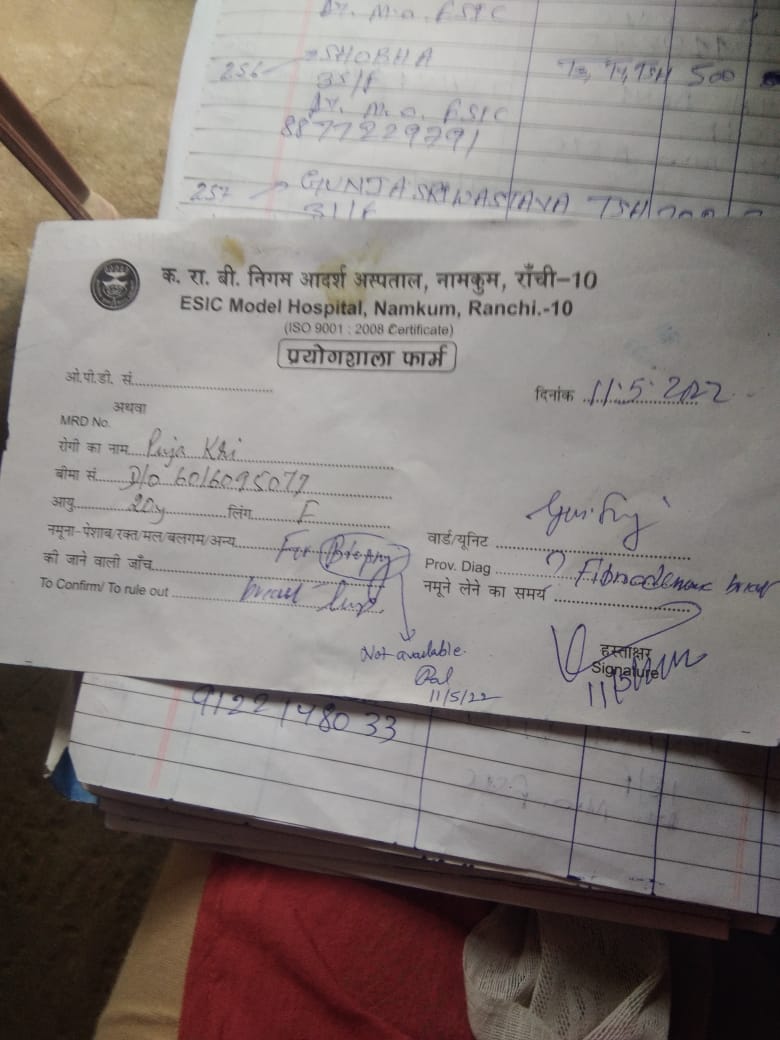 Dr. M.O. ESIC
256 SHOBHA T3, T4, TSH 500
35/F
Dr. M.O. ESIC
8877229791
257 GUNJA SRIWASTAVA TSH
31/F
क. रा. बी. निगम आदर्श अस्पताल, नामकुम, राँची-10
ESIC Model Hospital, Namkum, Ranchi.-10
(ISO 9001 : 2008 Certificate)
प्रयोगशाला फार्म
ओ.पी.डी. सं.
दिनांक 11.5.2022
अथवा
MRD No.
रोगी का नाम Puja Kri
बीमा सं. D/o 6016095077
आयु 20y लिंग F
नमूना-पेशाब/रक्त/मल/बलगम/अन्य For Biopsy
वार्ड/यूनिट
की जाने वाली जाँच
Prov. Diag ? Fibroadenoma breast
To Confirm/ To rule out breast lump
नमूने लेने का समय
हस्ताक्षर
Signature
Not available.
11/5/22
9122148033